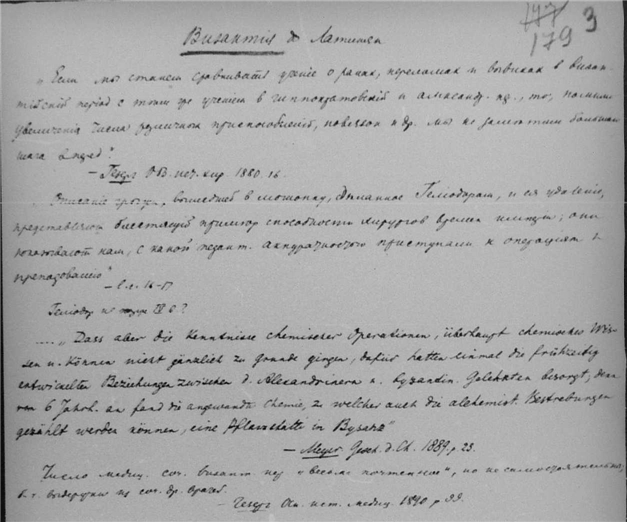 177
179 3
Византия и Латиняне
„Если мы станем сравнивать учение о ранах, переломах и вывихах в визан-
тийский период с тем же учением в гиппократовский и александр. пр., то, помимо
увеличения числа различных приспособлений, повязок и др. мы не заметим большого
шага вперед".
1880. 16
„Описание грыжи, вошедшей в мошонку, сделанное Гелиодором, и ея удаление,
представляют блестящий пример способности хирургов времен империи; они
показывают нам, с какой педант. аккуратностью приступали к операциям и
16-17
Гелиодор
.... „Dass aber die Kenntnisse chemischer Operationen, überhaupt chemisches Wis-
sen u. Können nicht gänzlich zu Grunde gingen, dafür hatten einmal die frühzeitig
entwickelten Beziehungen zwischen d. Alexandrinern u. byzantin. Gelehrten besorgt, denn
vom 6 Jahrh. an fand die angewandte Chemie, zu welcher auch die alchemist. Bestrebungen
gezählt werden können, eine Pflanzstätte in Byzanz"
— Meyer Gesch. d. Ch. 1889. p. 23.
Число медиц. соч. визант. пер „весьма почтенное", но не самостоятельны,
б. г. выдержки из соч. др. врачей.
ист. медиц. 1890 p 99.